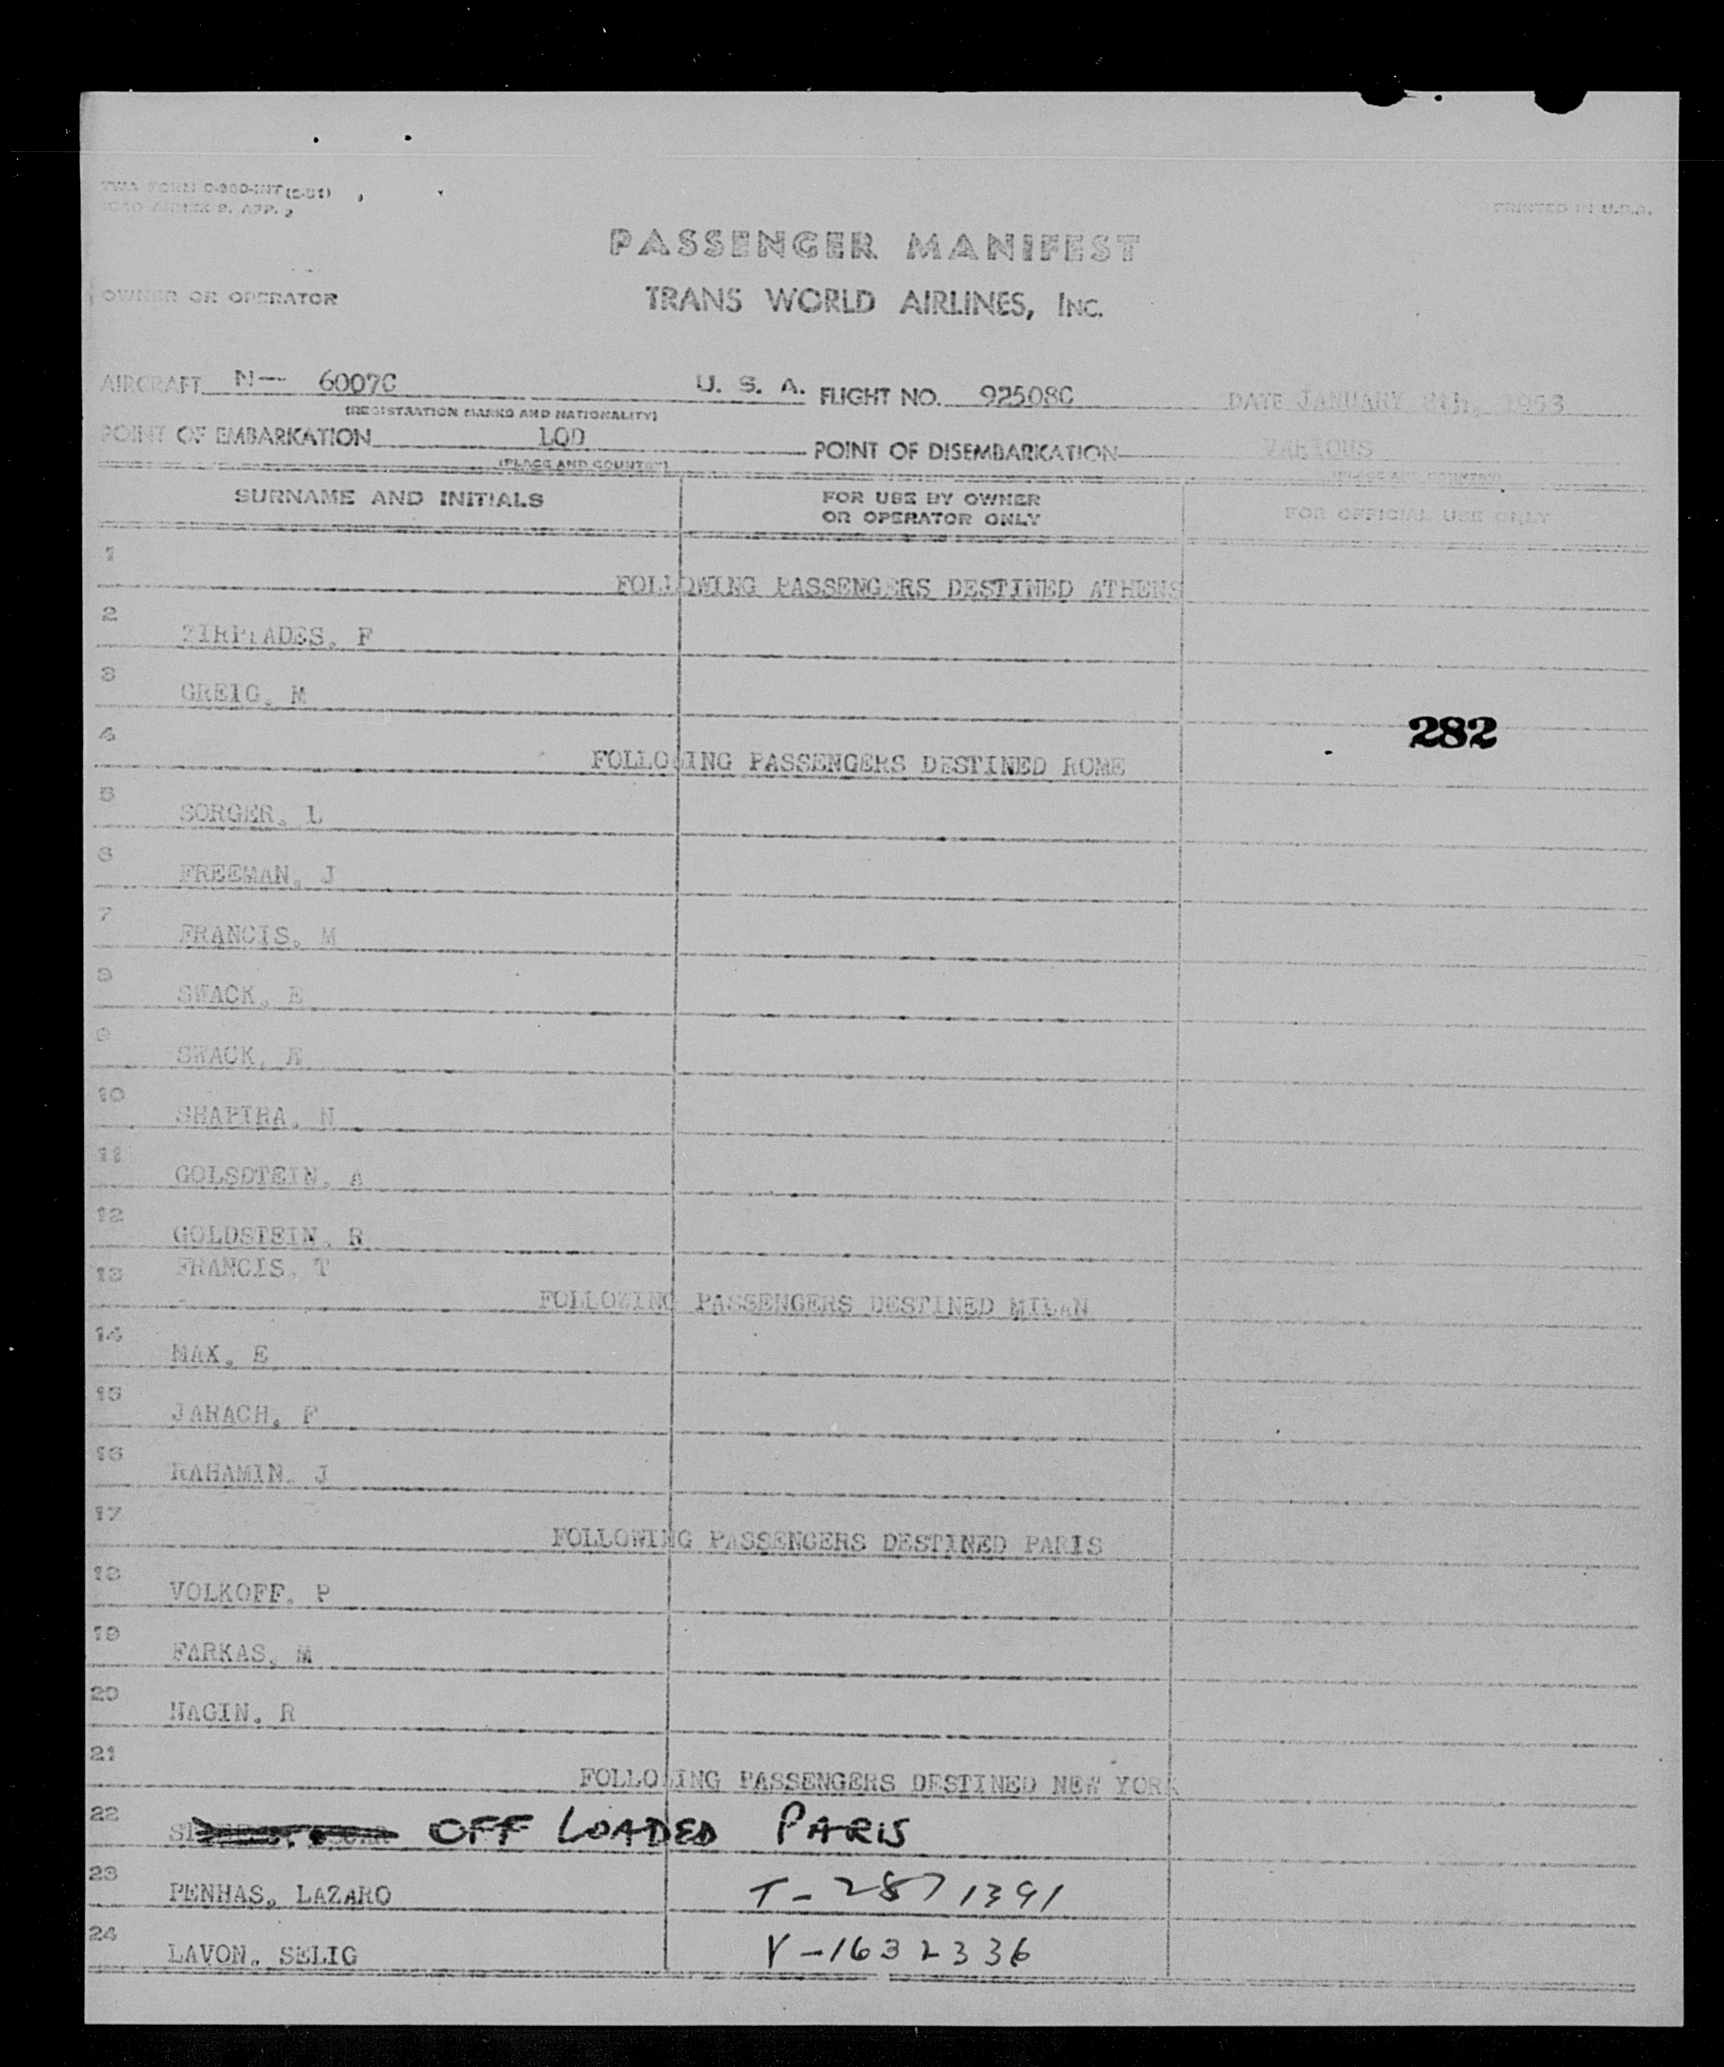 TWA FORM C-900-INT (5-51)
ICAO ANNEX 9, APP. 2
PRINTED IN U.S.A.
PASSENGER MANIFEST
OWNER OR OPERATOR TRANS WORLD AIRLINES, INC.
AIRCRAFT N— 6007C U. S. A. FLIGHT NO. 92508C DATE JANUARY 8th, 1953
(REGISTRATION MARKS AND NATIONALITY)
POINT OF EMBARKATION LOD POINT OF DISEMBARKATION VARIOUS
(PLACE AND COUNTRY) (PLACE AND COUNTRY)
SURNAME AND INITIALS FOR USE BY OWNER OR OPERATOR ONLY FOR OFFICIAL USE ONLY
1 FOLLOWING PASSENGERS DESTINED ATHENS
2 F
3 GREIG, M
282
4 FOLLOWING PASSENGERS DESTINED ROME
5 SORGER, L
6 FREEMAN, J
7 FRANCIS, M
8 SWACK, E
9 SWACK,
10 SHAPIRA, N
11 GOLSDTEIN, A
12 GOLDSTEIN, R
13 FRANCIS, T
FOLLOWING PASSENGERS DESTINED MILAN
14 MAX, E
15 JARACH, F
16 RAHAMIN, J
17 FOLLOWING PASSENGERS DESTINED PARIS
18 VOLKOFF, P
19 FARKAS, M
20 NAGIN, R
21 FOLLOWING PASSENGERS DESTINED NEW YORK
22 OFF LOADED PARIS
23 PENHAS, LAZARO T-2871391
24 LAVON, SELIG V-1632336